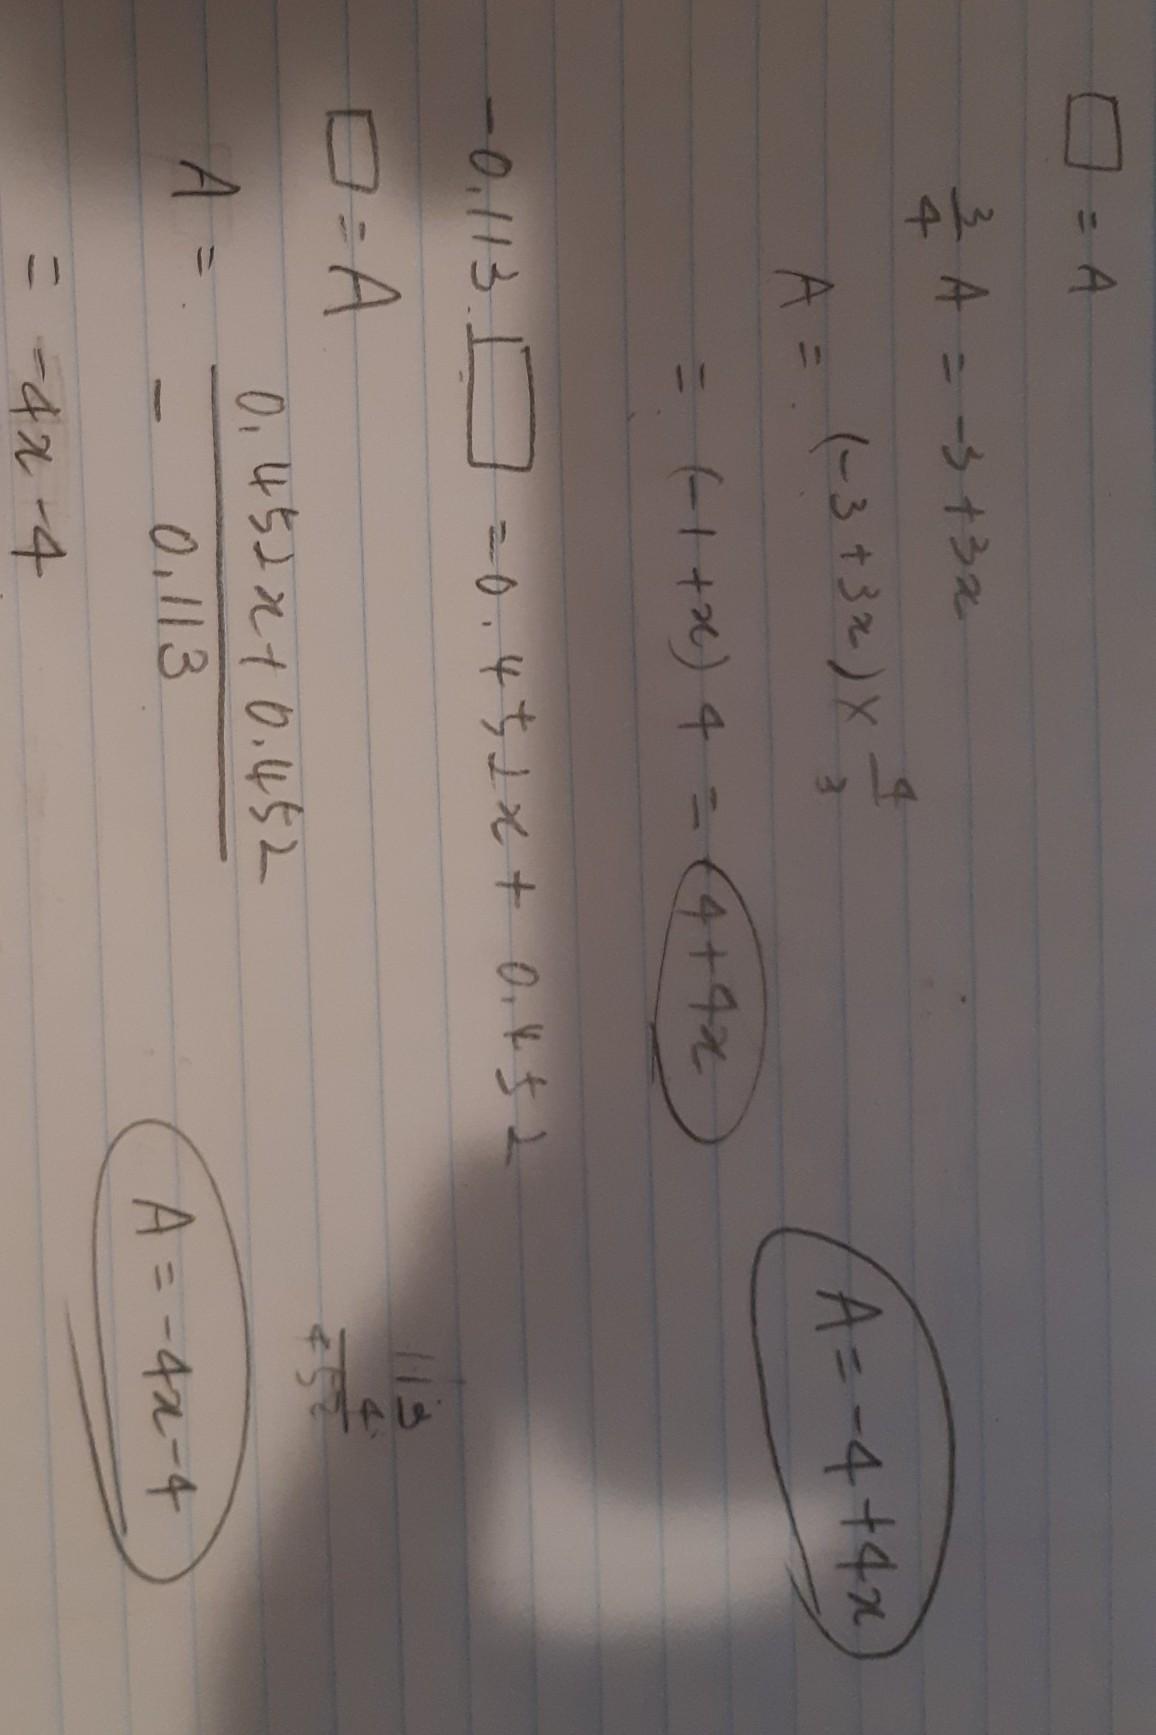 □ = A
3/4 A = -3+3x
A = (-3+3x) × 4/3
= (-1+x) 4 = -4+4x
A = -4+4x
-0.113 □ = 0.452x + 0.452
□ = A
113
4
452
A = 0.452x + 0.452 / - 0.113
A = -4x-4
= -4x-4